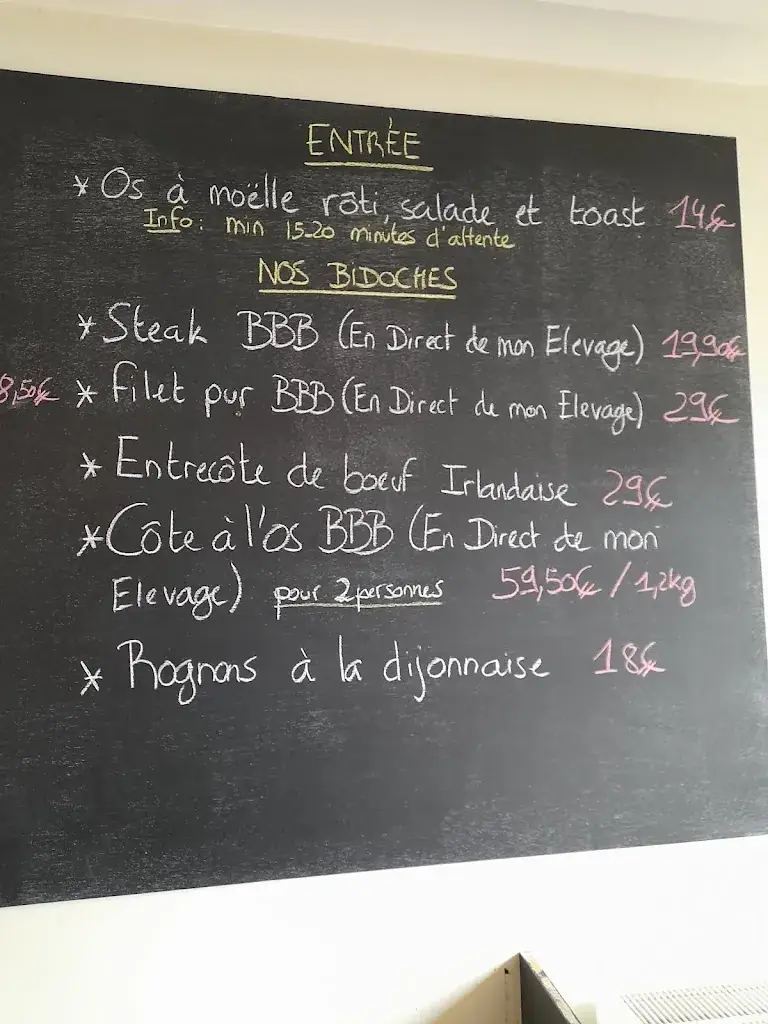 ENTRÉE
* Os à moëlle rôti, salade et toast 14€
Info: min 15-20 minutes d'attente
NOS BIDOCHES
* Steak BBB (En Direct de mon Elevage) 19,90€
8,50€ * Filet pur BBB (En Direct de mon Elevage) 29€
* Entrecôte de boeuf Irlandaise 29€
* Côte à l'os BBB (En Direct de mon
Elevage) pour 2 personnes 59,50€ / 1,2kg
* Rognons à la dijonnaise 18€